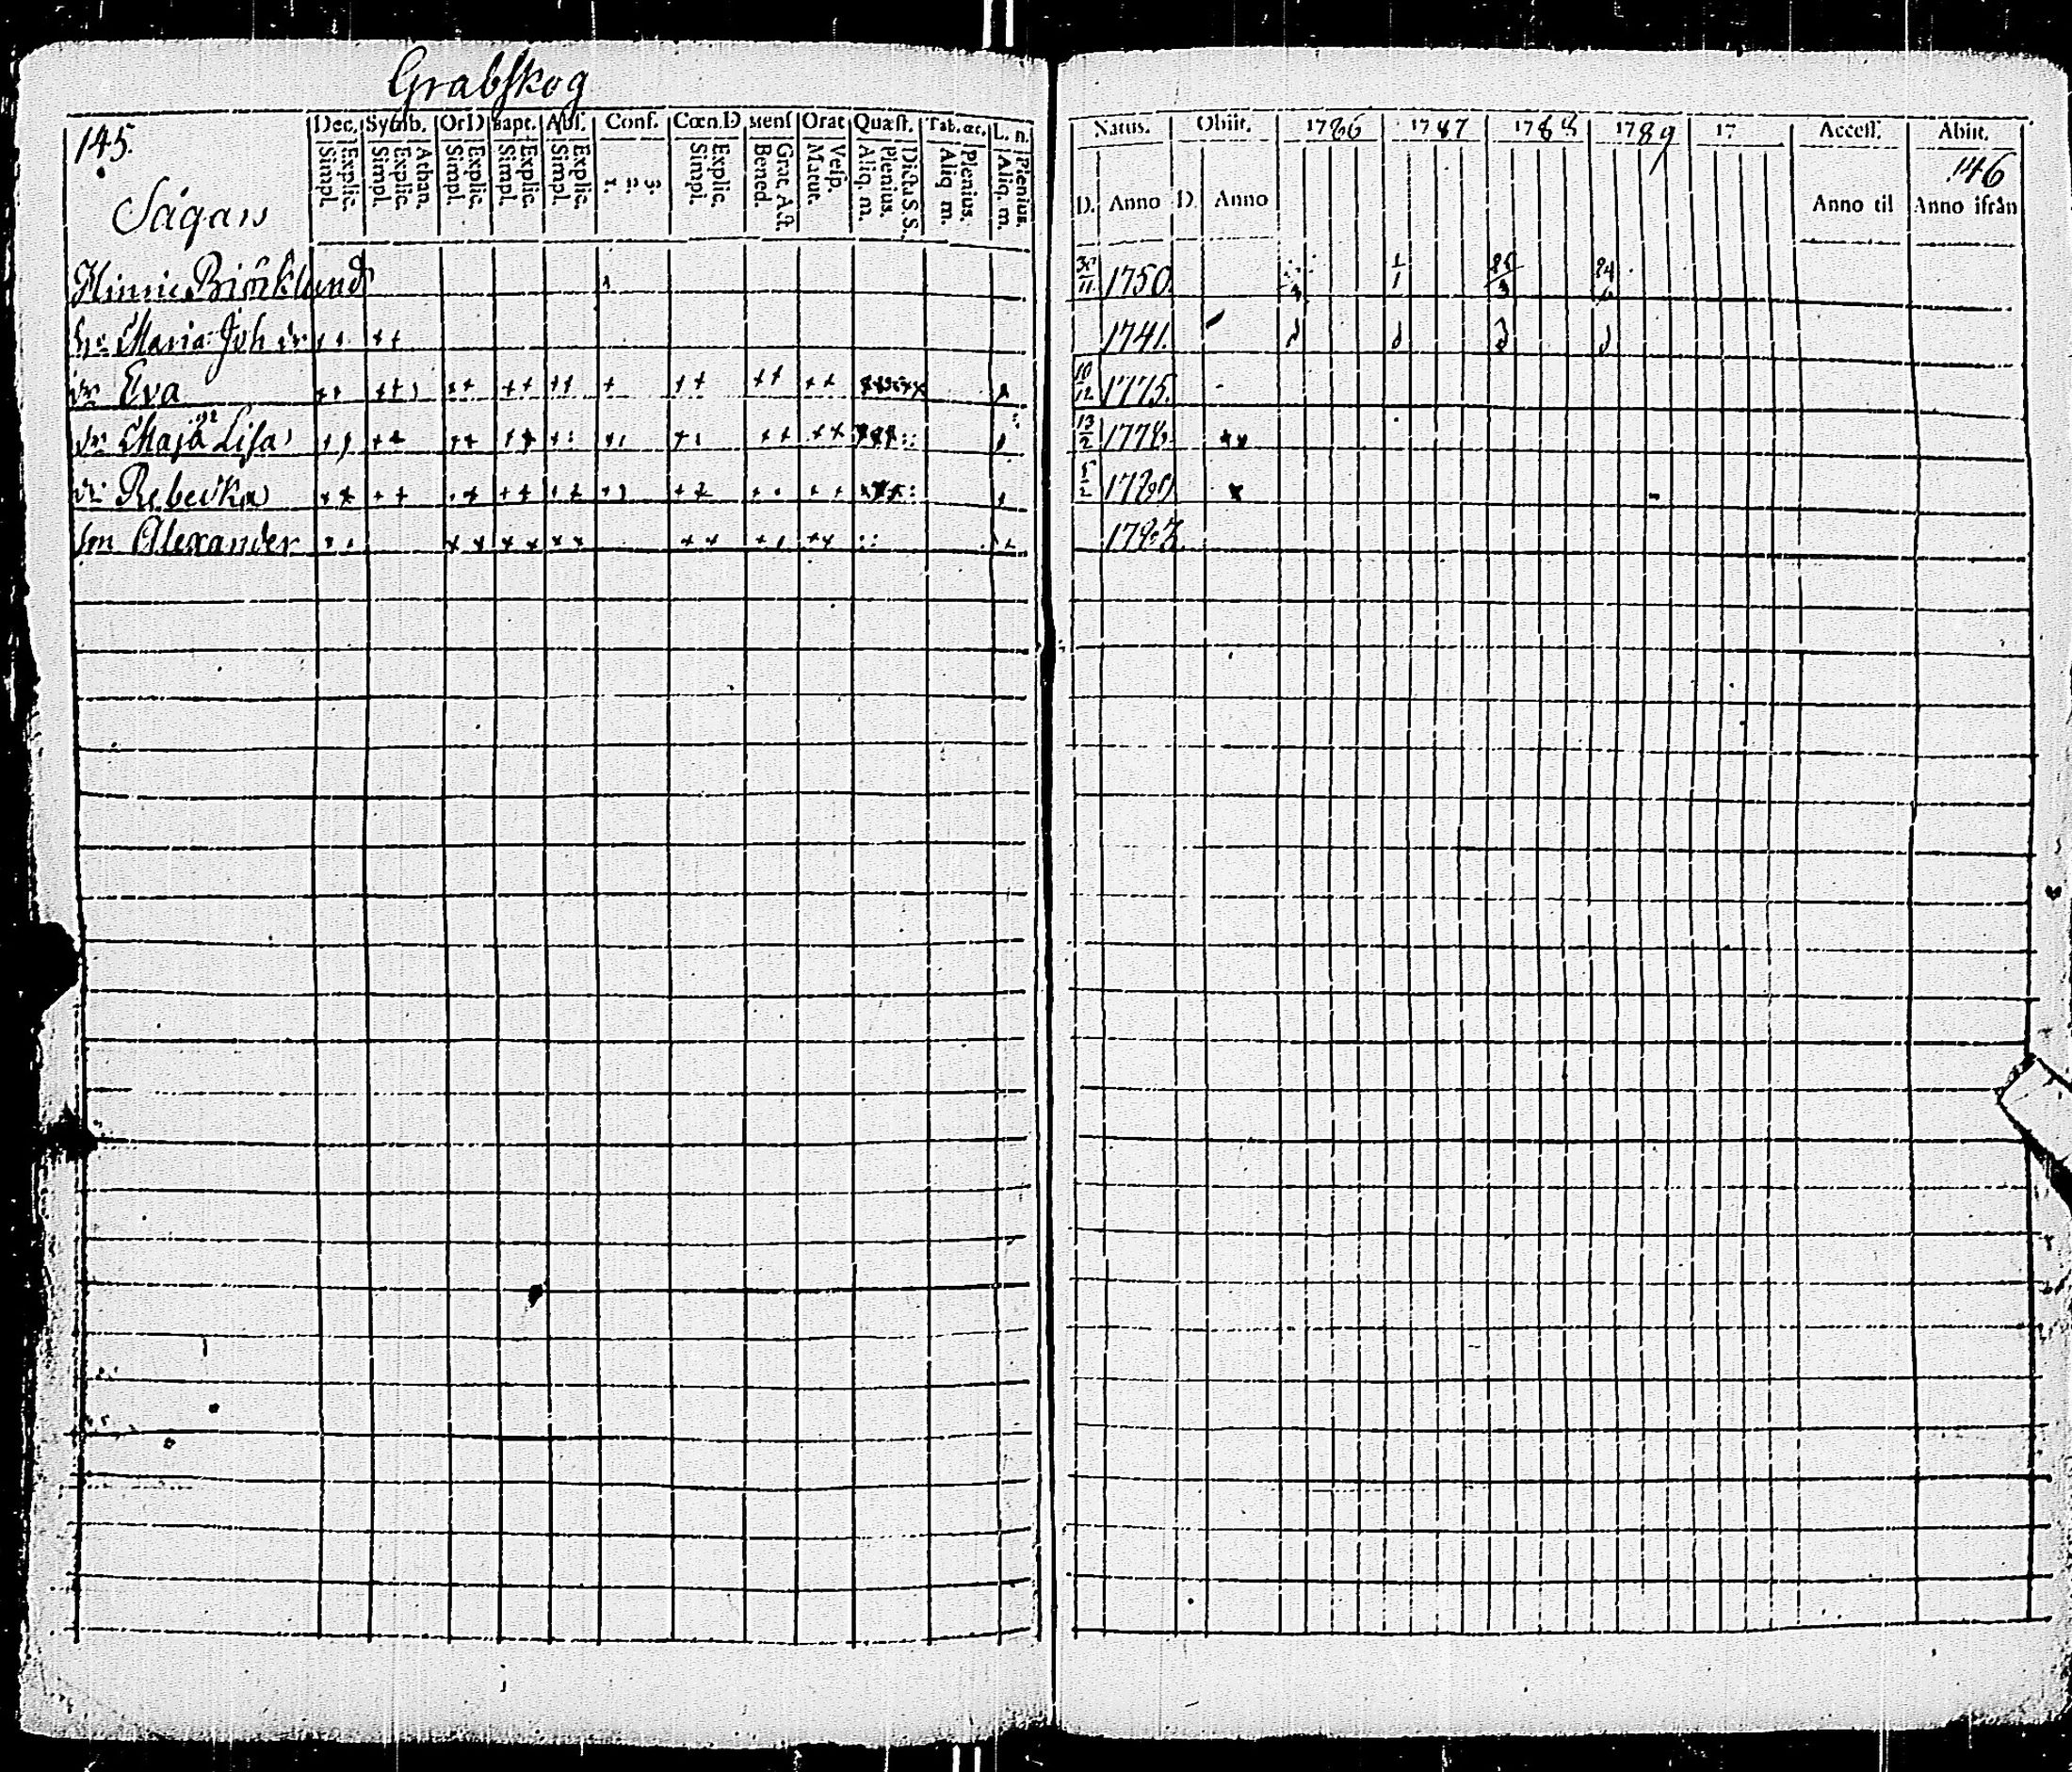 Grabskog
145.
Dec. Symb. Or D Bapt. Abs. Conf. Cœn. D Mens Orat Quæst. Tab. œc. L. n.
Simpl. Explic. Simpl. Explic. Athan. Simpl. Explic. Simpl. Explic. Simpl. Explic. 1. 2. 3. Simpl. Explic. Bened. Grat. Act. Matut. Vesp. Aliq. m. Plenius. Dicta S. S. Aliq. m. Plenius. Aliq. m. Plenius.
Sågan
Björklund
hu Maria Joh dr
dr Eva
dr Maja Lisa
dr Rebecka
son Alexander
Natus. Obiit. 1786 1787 1788 1789 17 Access. Abiit.
146
D. Anno D. Anno Anno til Anno ifrån
30/11 1750. 1/1 25/3 24/6
1741.
10/12 1775.
13/2 1778.
5/2 1780